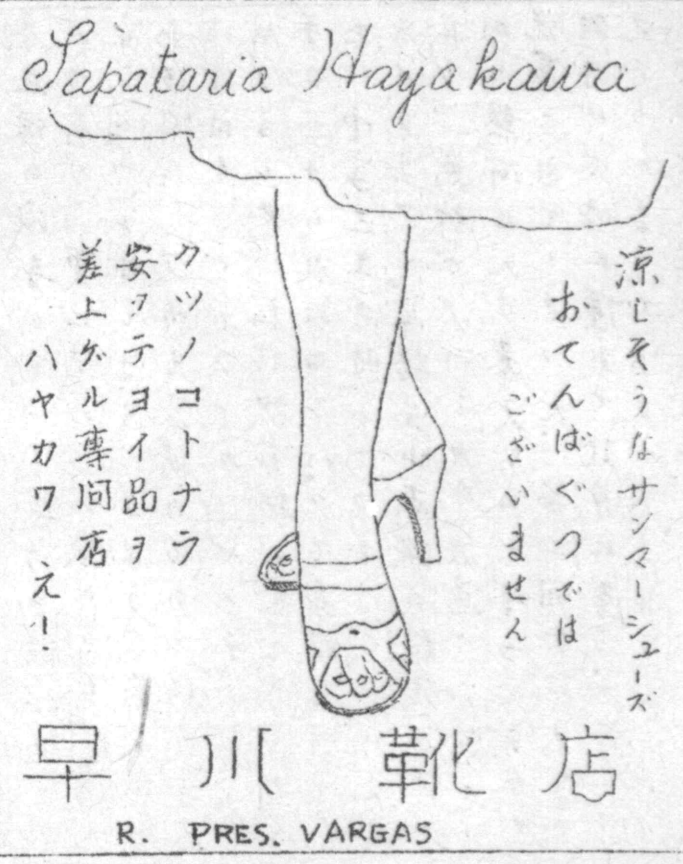 Sapataria Hayakawa
涼しそうなサンマーシューズ
おてんばぐつでは
ございません
クツノコトナラ
安ヲテヨイ品ヲ
差上ゲル専问店
ハヤカワ え!
早川靴店
R. PRES. VARGAS